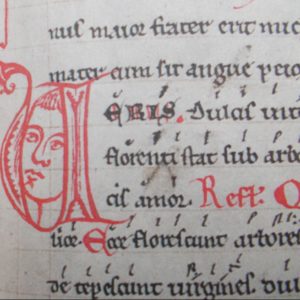 nus maior frater erit mic
mater cum sit angue peio
VERIS. Dulcis in t
florenti stat sub arbo
cis amor. Refl. Q
Ecce florescunt arbores
de tepescunt uirgines dul